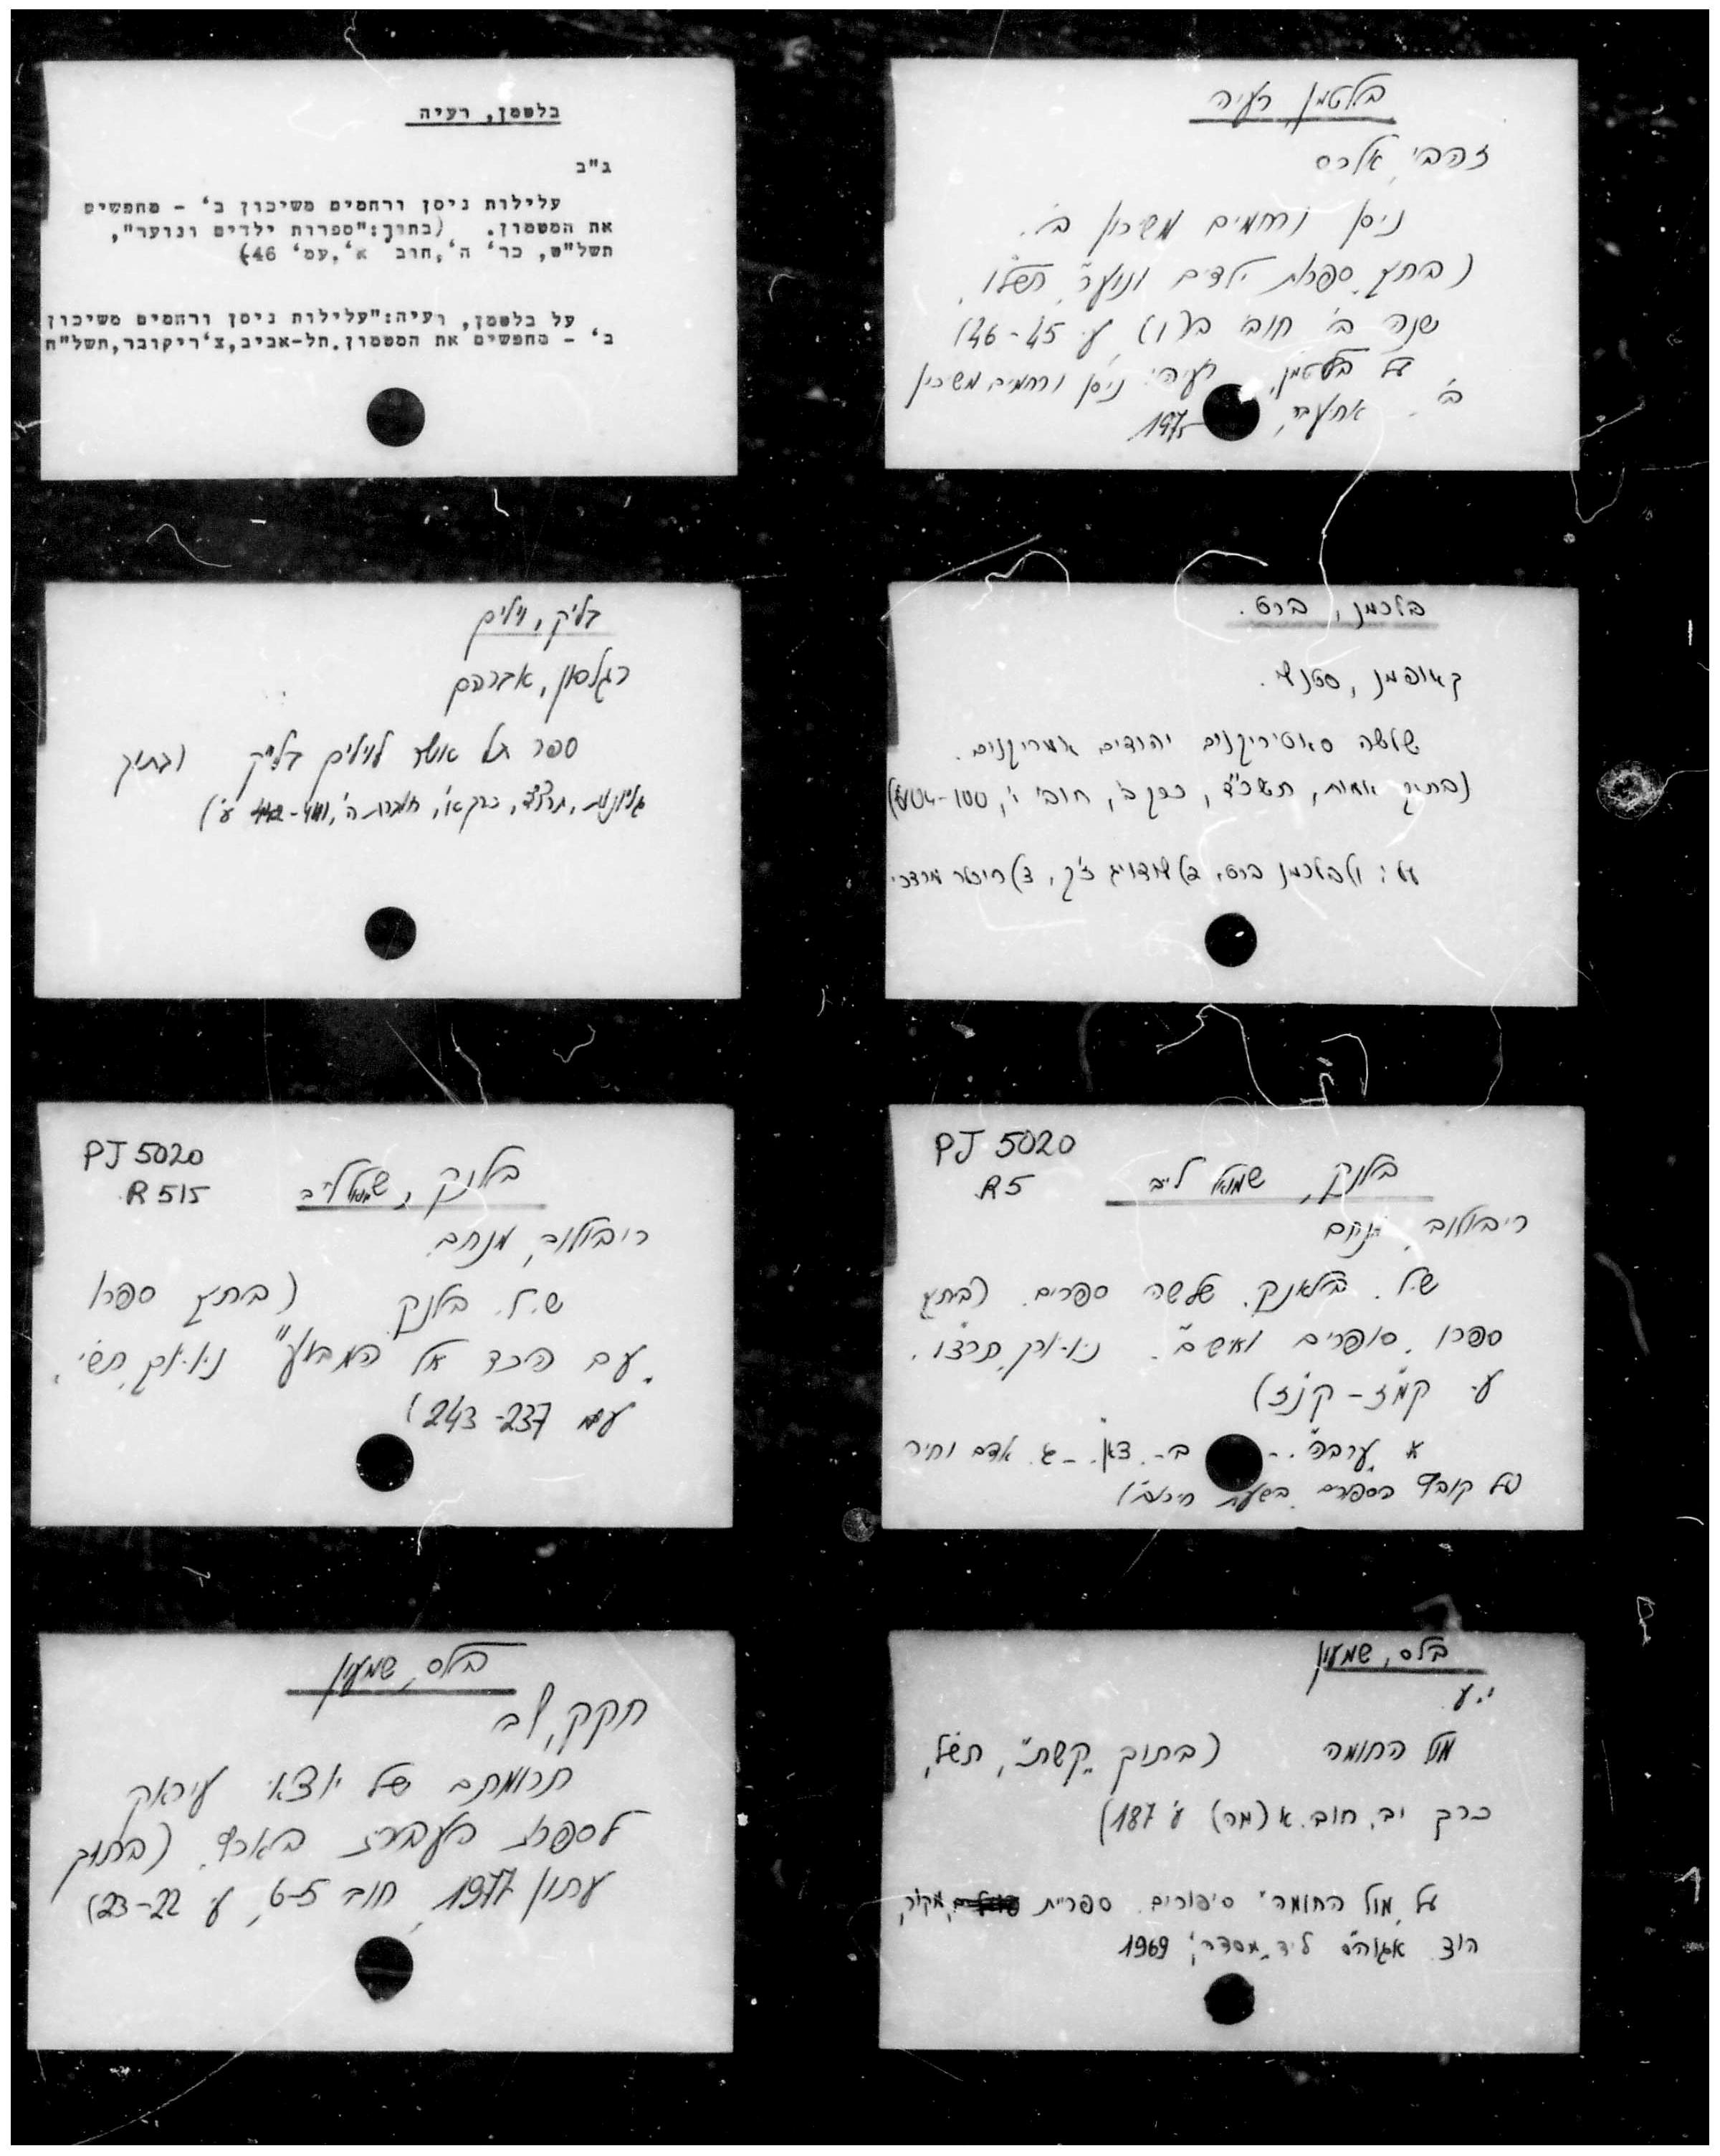 בלטמן, רעיה
ג"ב
עלילות ניסן ורחמים משיכון ב' - מחפשים
את המטמון. (בתוך:"ספרות ילדים ונוער",
תשל"ט, כר' ה',חוב' א',עמ' 46)
על בלטמן, רעיה:"עלילות ניסן ורחמים משיכון
ב' - מחפשים את המטמון.תל-אביב,צ'ריקובר,תשל"ח
בלטמן רעיה
זהבי, אלכס
ניסן ורחמים משיכון ב'.
(בתוך "ספרות ילדים ונוער", תשל"ו,
שנה ב' חוב' ב' (ו) ע' 45-46)
על בלטמן, רעיה: ניסן ורחמים משיכון
ב'. 1975
בליק, וילים
רגלסון, אברהם
ספר תל לוילים בליק (בתוך
גליונות, תרצ"ד, כרך א', חוברת ה', ע')
בלכמן, ברט.
קאופמן,
שלשה סאטיריקנים יהודים אמריקנים.
(בתוך אמות, תשכ"ד, כרך ב', חוב' י', 100-104)
על: בלכמן ברט, ז'ק, ריכלר מרדכי
PJ 5020
R 515
בלנק, שמואל ליב
ריבולוב, מנחם
ש.ל. בלנק (בתוך ספרו
"עם הכד אל המבוע" ניו-יורק, תש"י,
עמ 237-243)
PJ 5020
R5
בלנק, שמואל ליב
ריבולוב, מנחם
ש.ל. בלאנק. שלשה ספרים. (בתוך
ספרו "סופרים ואישים". ניו-יורק, תרצ"ו,
ע' קמ"ז - קנ"ז)
א "ערבה". - ב'-. צאן. - ג. אדם וחיה
על קובץ הספורים "בשעת חירום")
בלס, שמעון
חקק, לב
תרומתם של יוצאי עיראק
לספרות העברית בארץ. (בתוך
עתון 1977, חוב 5-6, ע' 22-23)
בלס, שמעון
י.ע.
מול החומה (בתוך "קשת", תש"ל,
כרך יב, חוב. א (מה) ע' 187)
על "מול החומה" סיפורים. ספריית מקור,
הוצ' אגוה"ס ליד "מסדה", 1969